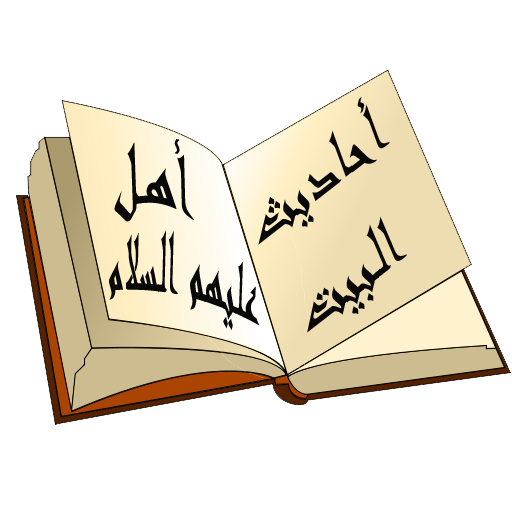 أحاديث أهل
البيت عليهم السلام